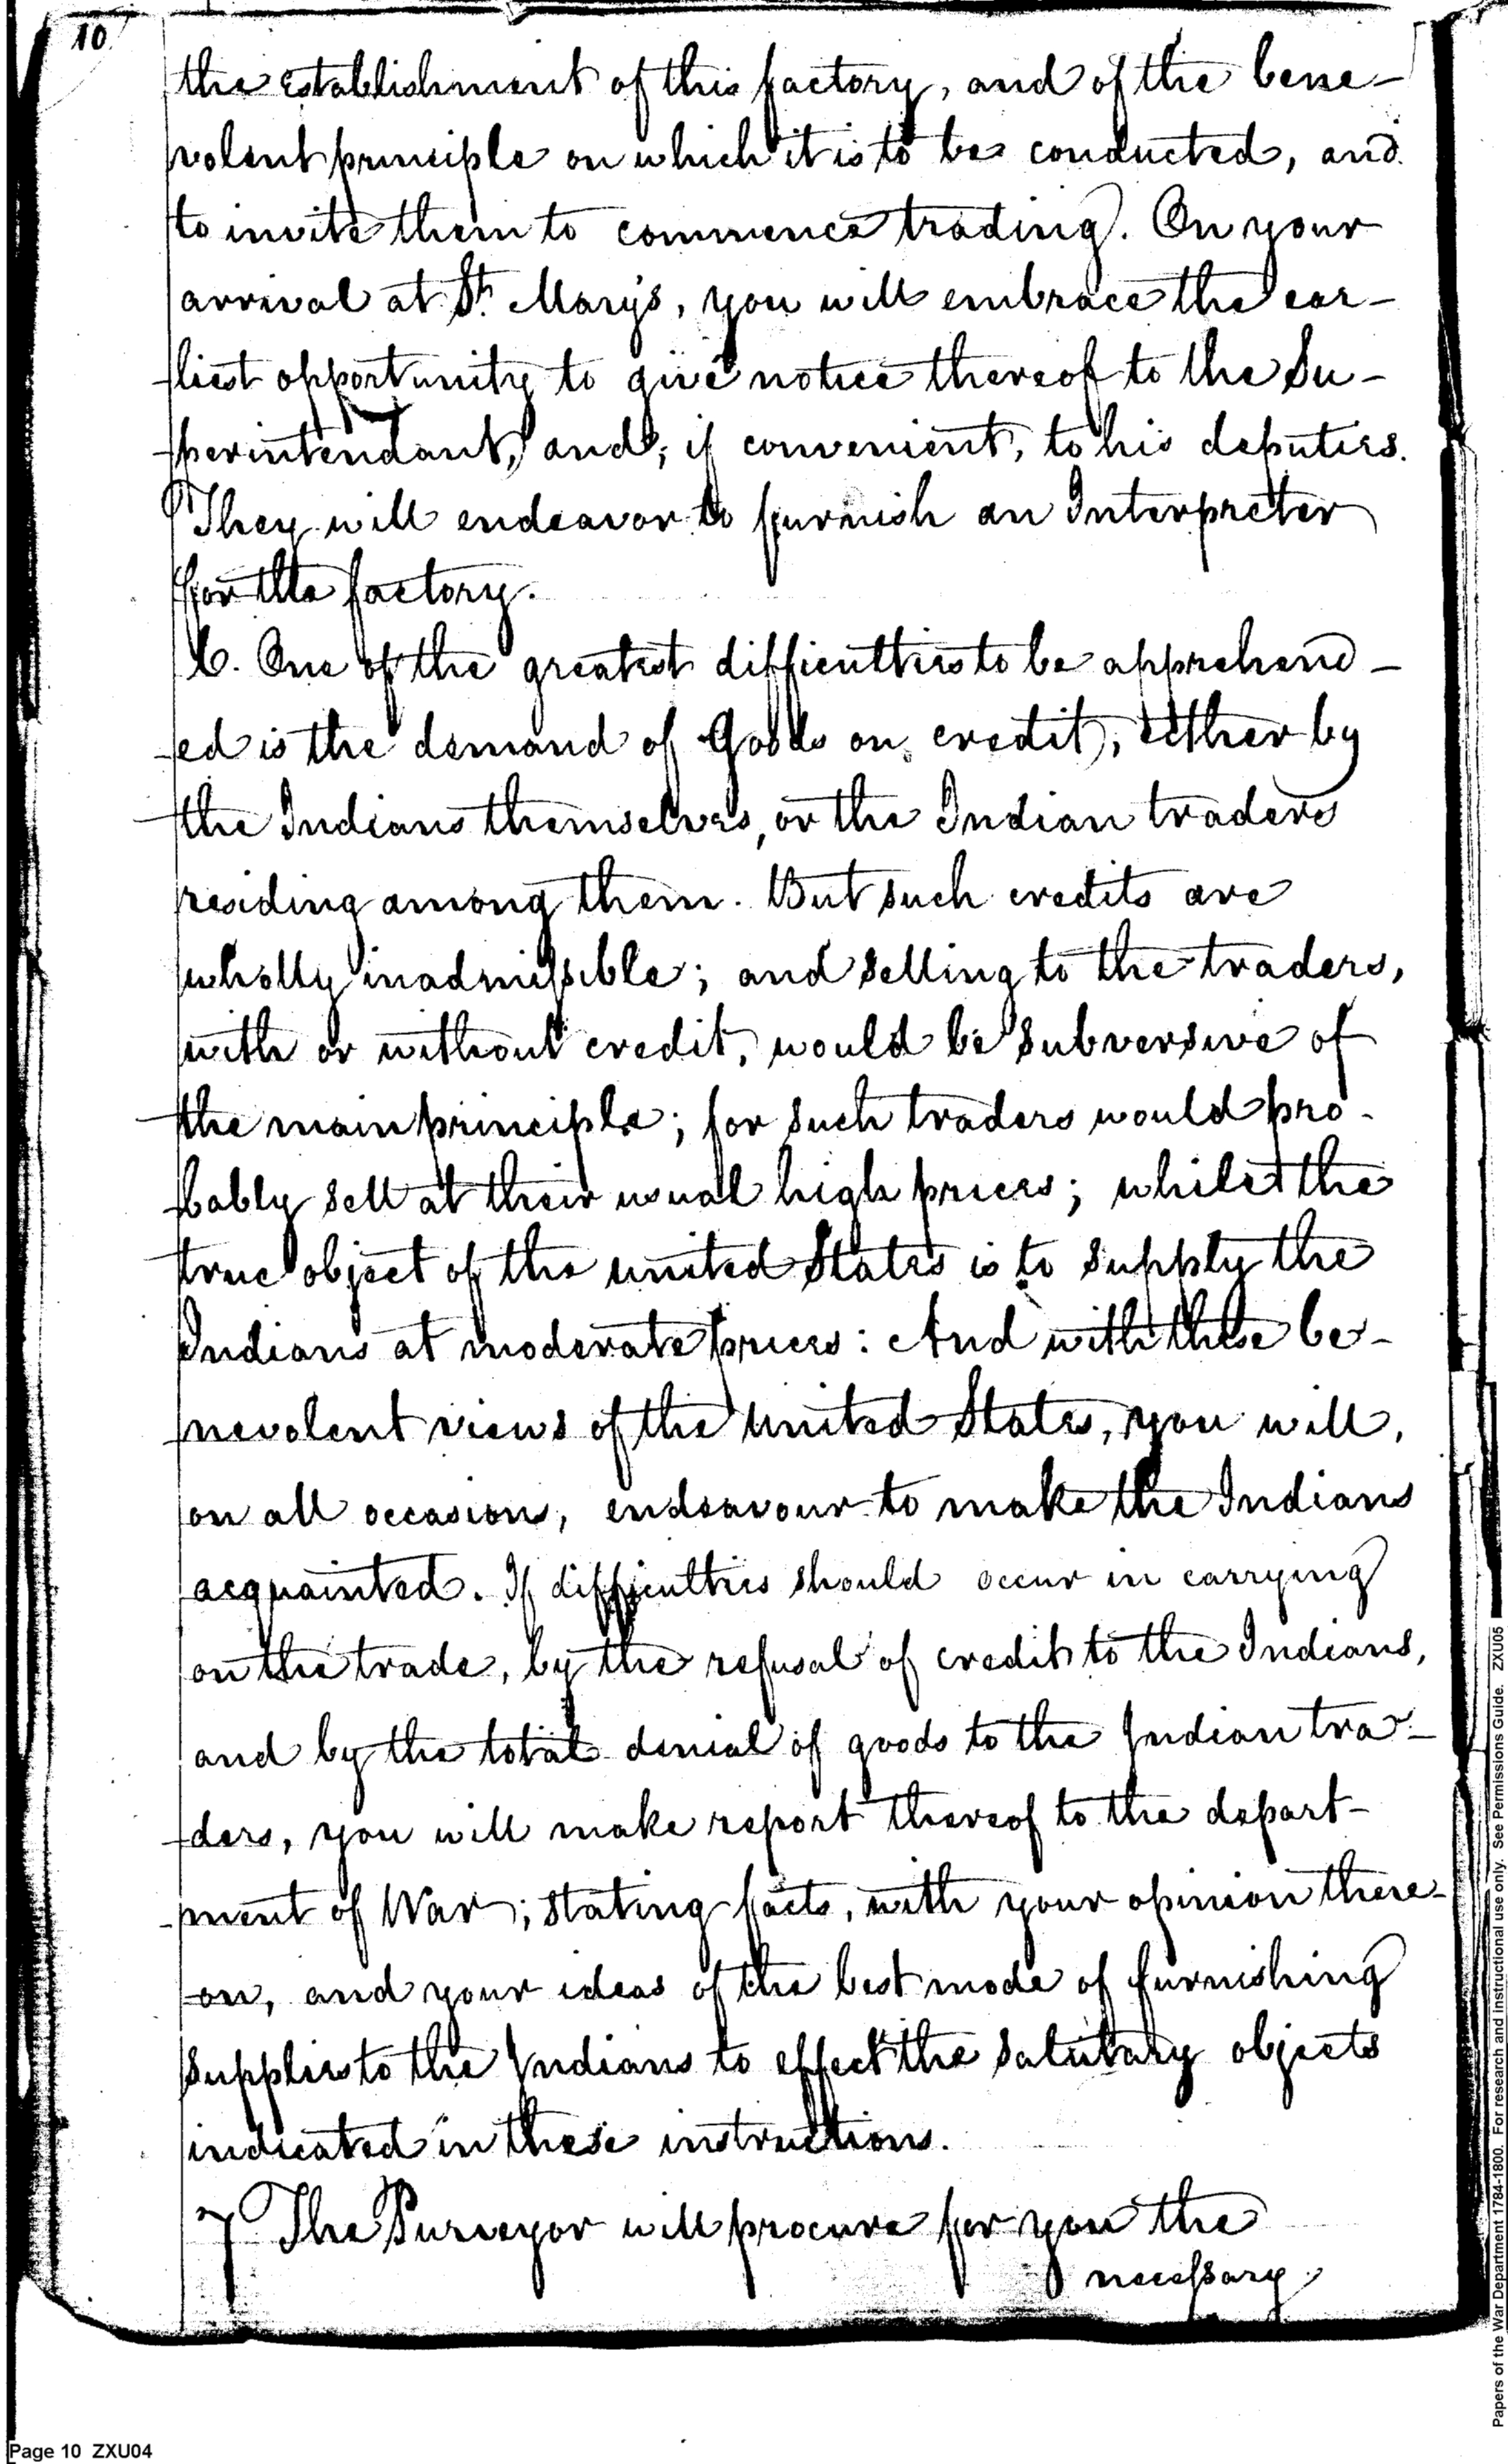 10.
the establishment of this factory, and of the bene-
volent principle on which it is to be conducted, and
to invite them to commence trading. On your
arrival at St. Mary's, you will embrace the ear-
liest opportunity to give notice thereof to the Su-
perintendant, and, if convenient, to his deputies.
They will endeavor to furnish an Interpreter
for the factory.
6. One of the greatest difficulties to be apprehend-
ed is the demand of Goods on credit, either by
the Indians themselves, or the Indian traders
residing among them. But such credits are
wholly inadmissible; and selling to the traders,
with or without credit, would be subversive of
the main principle; for such traders would pro-
bably sell at their usual high prices; whilst the
true object of the united States is to supply the
Indians at moderate prices: And with these be-
nevolent views of the united States, you will,
on all occasions, endeavour to make the Indians
acquainted. If difficulties should occur in carrying
on the trade, by the refusal of credit to the Indians,
and by the total denial of goods to the Indian tra-
ders, you will make report thereof to the depart-
ment of War; stating facts, with your opinion there-
on, and your ideas of the best mode of furnishing
supplies to the Indians to effect the salutary objects
indicated in these instructions.
7 The Purveyor will procure for you the
necessary
Page 10 ZXU04
Papers of the War Department 1784-1800. For research and instructional use only. See Permissions Guide. ZXU05